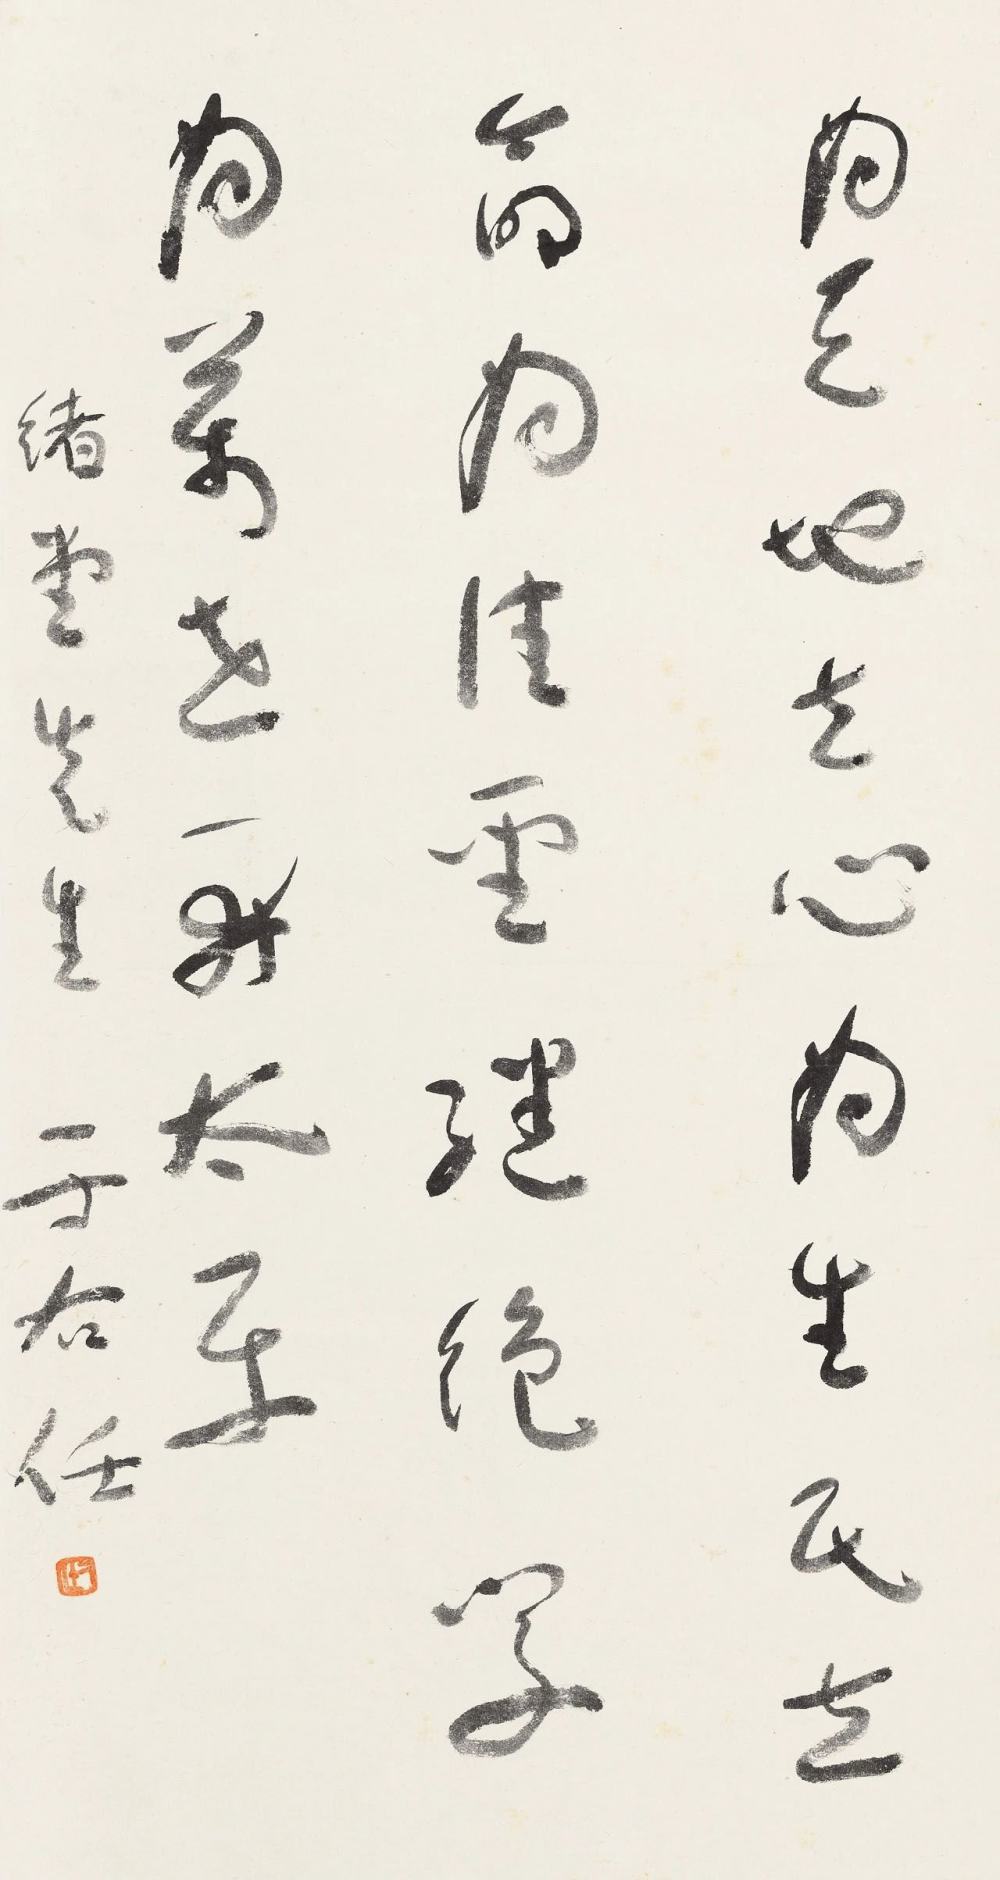 為天地立心為生民立
命為往聖繼絕學
為萬世開太平
緒堂先生 于右任